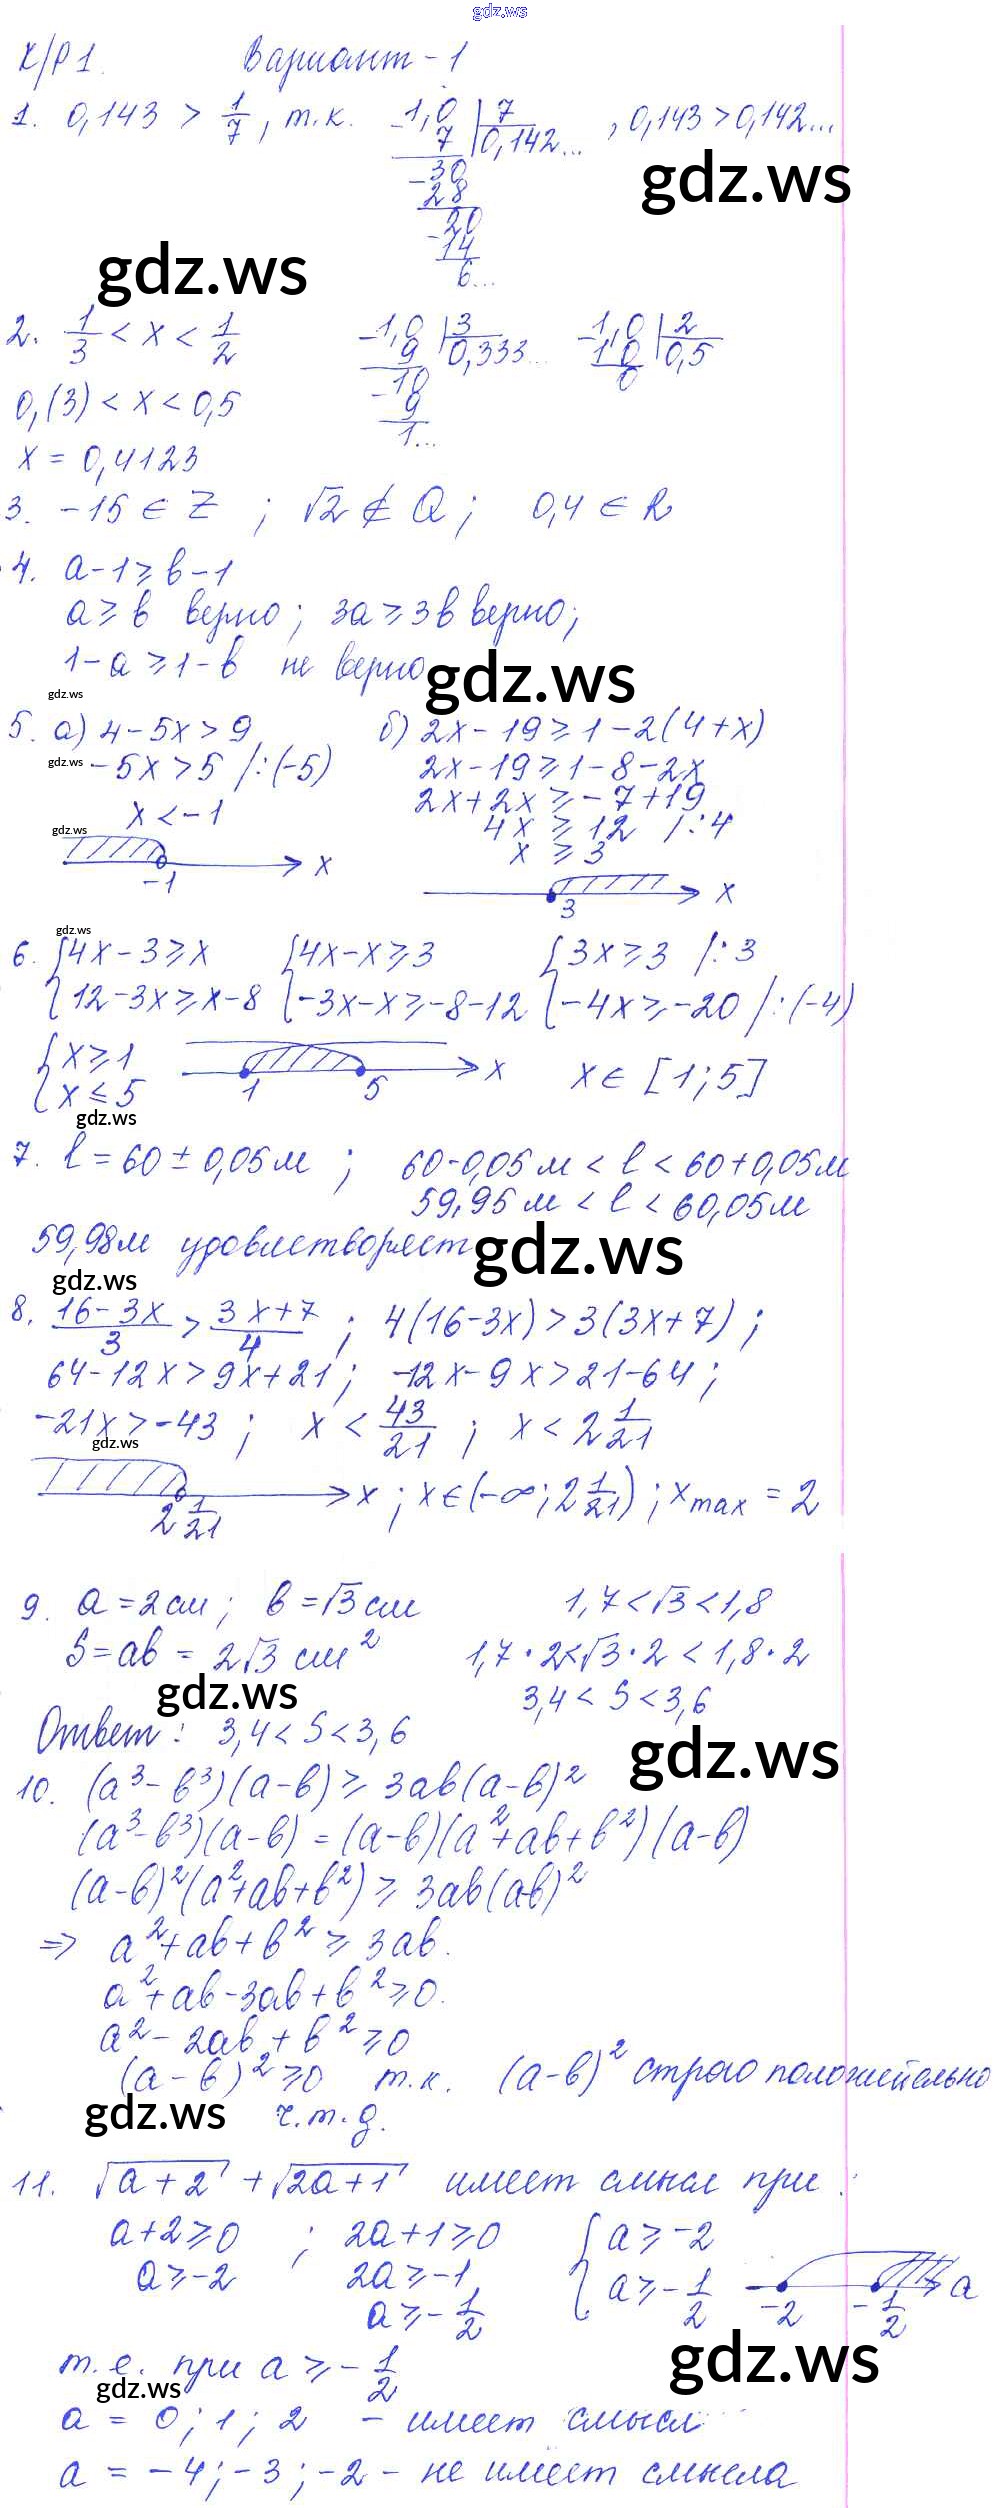 gdz.ws
К/Р 1. Вариант - 1
1. 0,143 > 1/7, т.к. -1,0 | 7 , 0,143 > 0,142...
7 | 0,142...
-30
28
-20
14
6...
gdz.ws
gdz.ws
2. 1/3 < x < 1/2 -1,0 | 3 -1,0 | 2
9 | 0,333... 10 | 0,5
-10 0
0,(3) < x < 0,5 9
1...
x = 0,4123
3. -15 ∈ Z ; √2 ∉ Q ; 0,4 ∈ R
4. a - 1 ≥ b - 1
a ≥ b верно ; 3a ≥ 3b верно;
1 - a ≥ 1 - b не верно
gdz.ws
gdz.ws
5. а) 4 - 5x > 9 б) 2x - 19 ≥ 1 - 2(4 + x)
gdz.ws
-5x > 5 |:(-5) 2x - 19 ≥ 1 - 8 - 2x
x < -1 2x + 2x ≥ -7 + 19
gdz.ws
4x ≥ 12 |:4
x ≥ 3
-1 x 3 x
gdz.ws
6. {4x - 3 ≥ x {4x - x ≥ 3 {3x ≥ 3 |:3
{12 - 3x ≥ x - 8 {-3x - x ≥ -8 - 12 {-4x ≥ -20 |:(-4)
{x ≥ 1
{x ≤ 5 1 5 x x ∈ [1; 5]
gdz.ws
7. l = 60 ± 0,05 м ; 60 - 0,05 м < l < 60 + 0,05 м
59,95 м < l < 60,05 м
59,98 м удовлетворяет
gdz.ws
gdz.ws
8. (16 - 3x)/3 > (3x + 7)/4 ; 4(16 - 3x) > 3(3x + 7) ;
64 - 12x > 9x + 21 ; -12x - 9x > 21 - 64 ;
-21x > -43 ; x < 43/21 ; x < 2 1/21
gdz.ws
2 1/21 x ; x ∈ (-∞; 2 1/21) ; x max = 2
9. a = 2 см ; b = √3 см 1,7 < √3 < 1,8
S = ab = 2√3 см² 1,7 · 2 < √3 · 2 < 1,8 · 2
gdz.ws
3,4 < S < 3,6
Ответ : 3,4 < S < 3,6
gdz.ws
10. (a³ - b³)(a - b) ≥ 3ab(a - b)²
(a³ - b³)(a - b) = (a - b)(a² + ab + b²)(a - b)
(a - b)²(a² + ab + b²) ≥ 3ab(ab)²
⇒ a² + ab + b² ≥ 3ab.
a² + ab - 3ab + b² ≥ 0.
a² - 2ab + b² ≥ 0
(a - b)² ≥ 0 т.к. (a - b)² строго положительно
gdz.ws
ч.т.д.
11. √(a + 2) + √(2a + 1) имеет смысл при :
a + 2 ≥ 0 ; 2a + 1 ≥ 0 {a ≥ -2
a ≥ -2 2a ≥ -1 {a ≥ -1/2 -2 -1/2 a
a ≥ -1/2
gdz.ws
т.е. при a ≥ -1/2
gdz.ws
a = 0 ; 1 ; 2 - имеет смысл
a = -4 ; -3 ; -2 - не имеет смысла